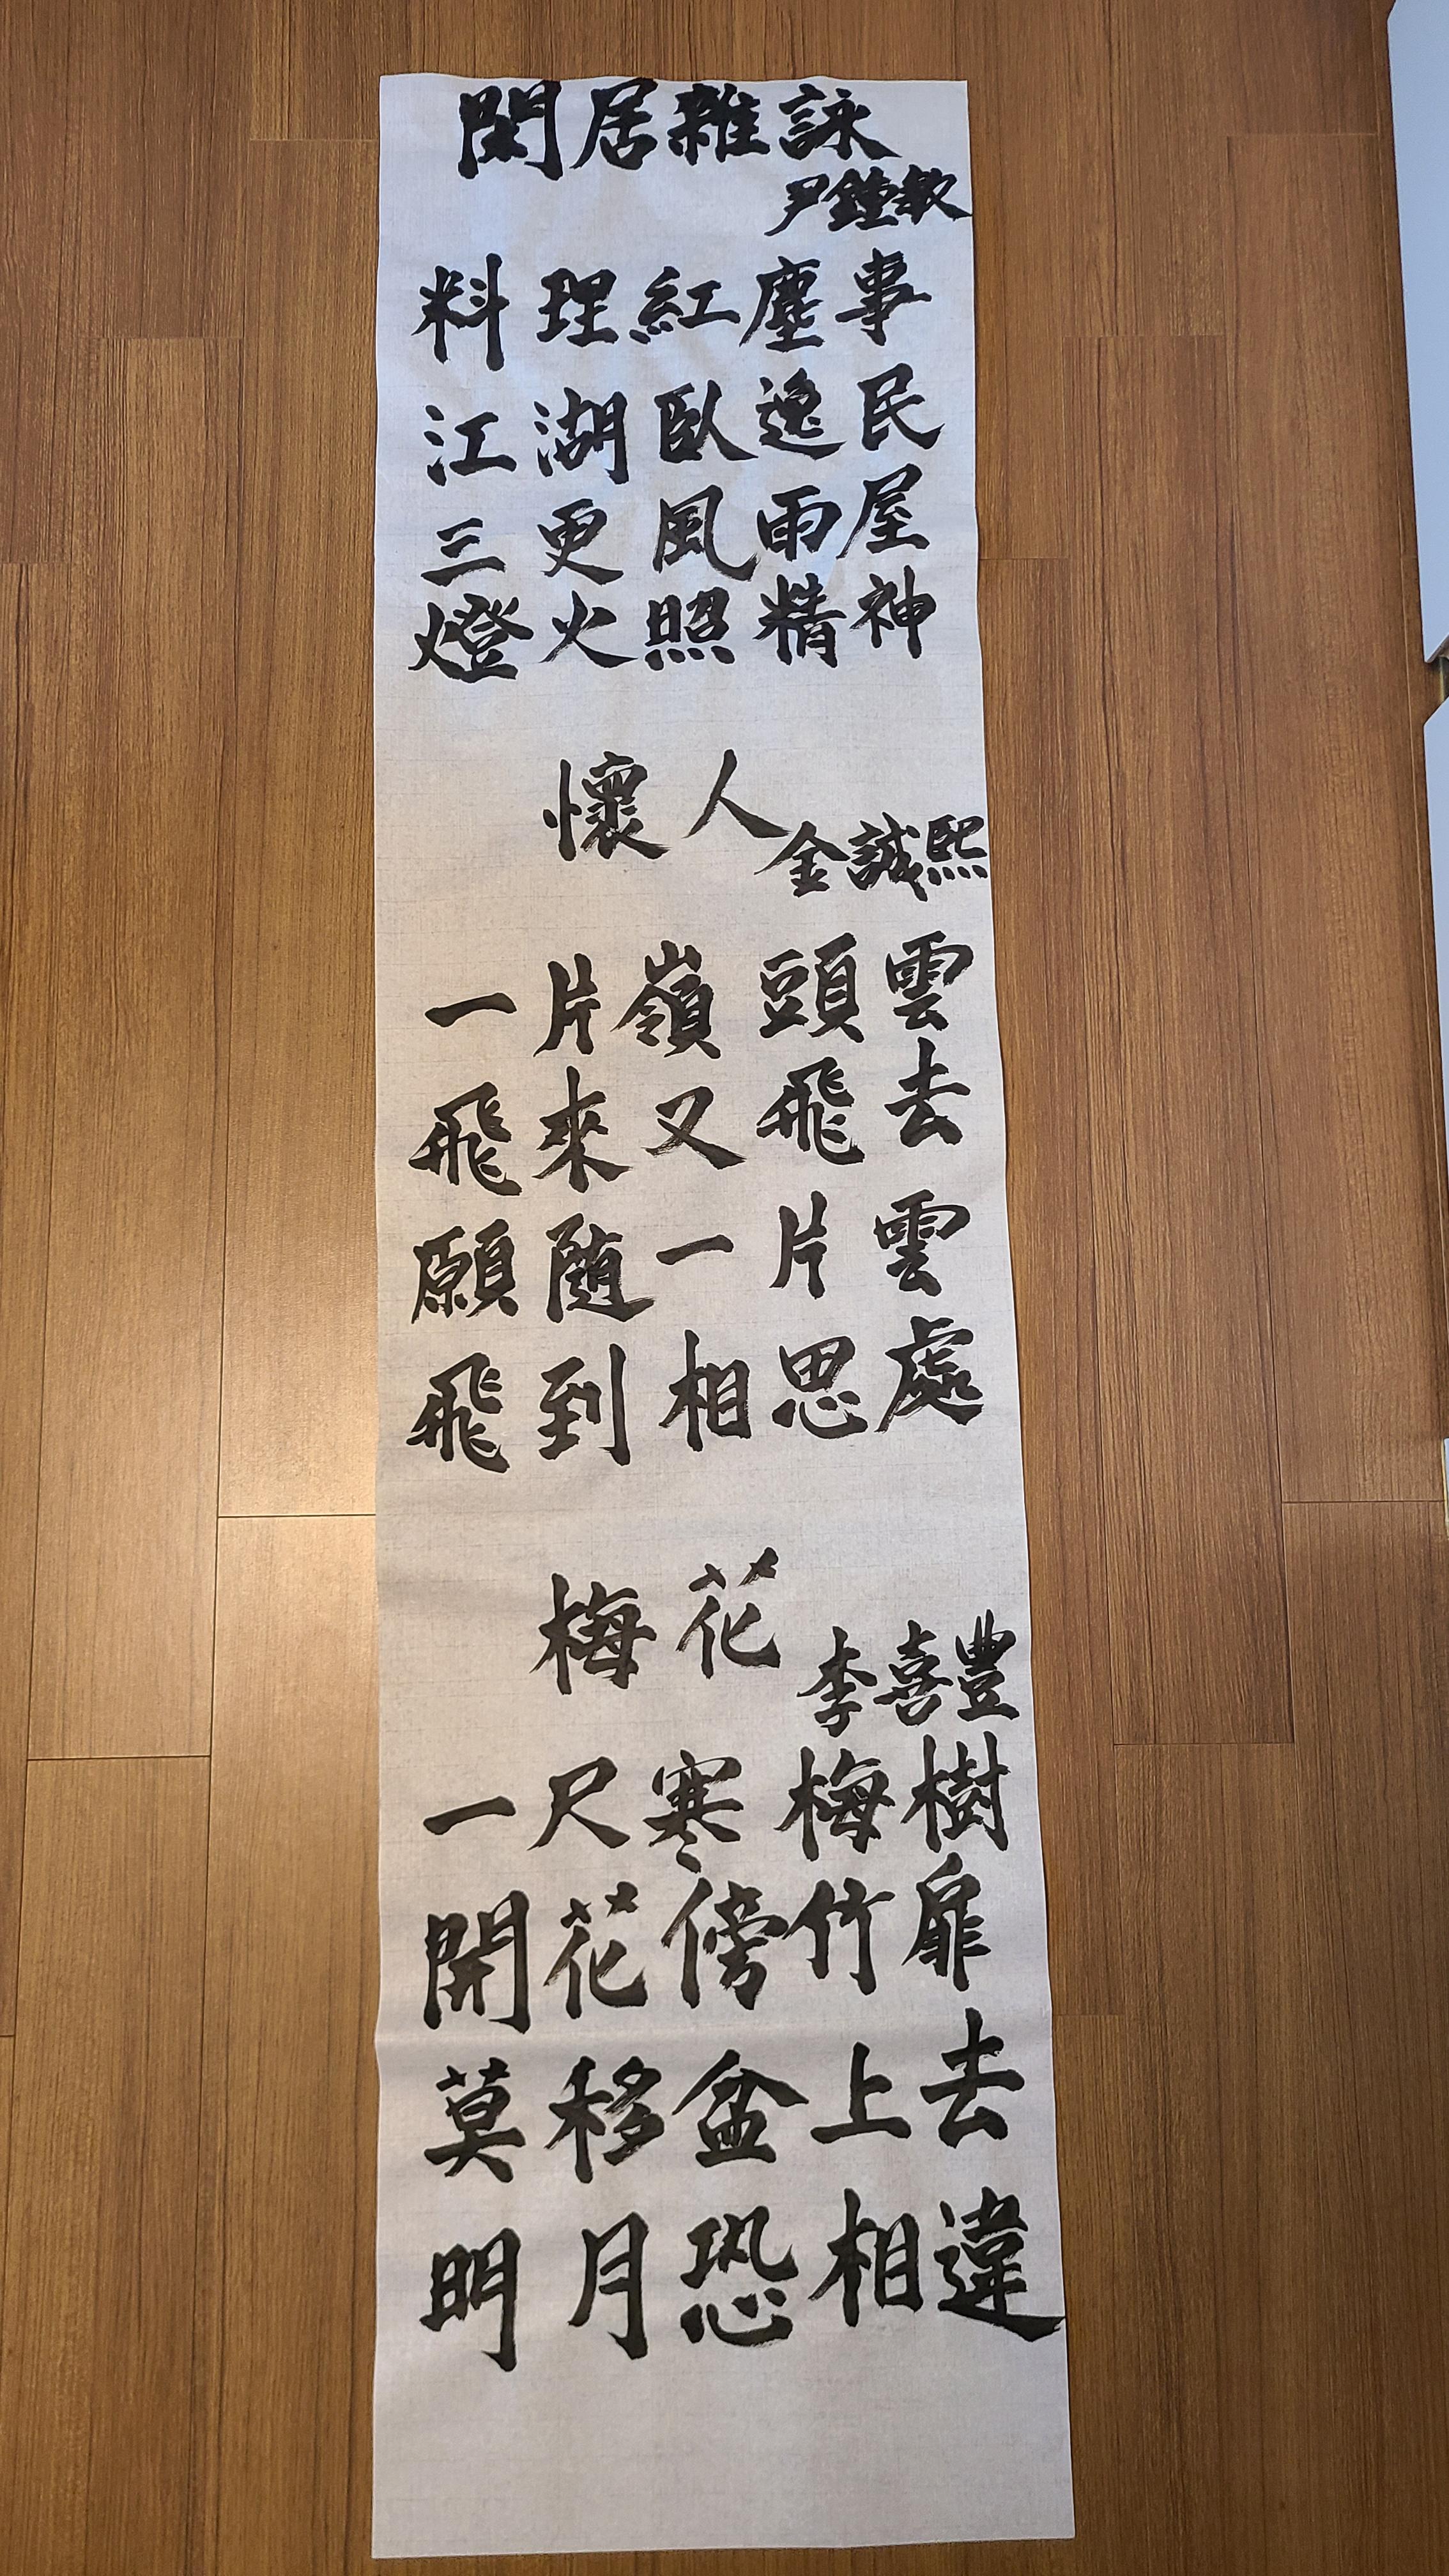 閑居雜詠
尹鍾敏
料理紅塵事
江湖臥逸民
三更風雨屋
燈火照精神
懷人
金誠熙
一片嶺頭雲
飛來又飛去
願隨一片雲
飛到相思處
梅花
李喜豐
一尺寒梅樹
開花傍竹扉
莫移盆上去
明月恐相違